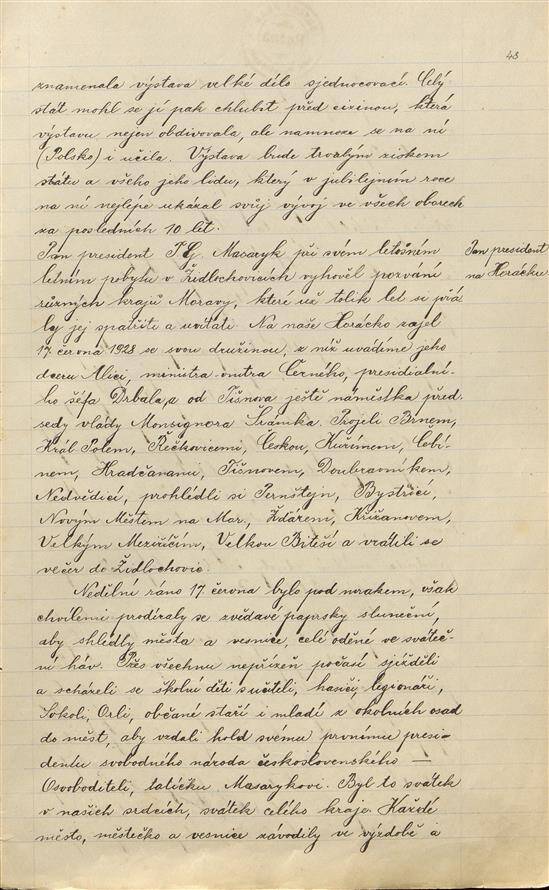 43
znamenala výstava velké dílo sjednocovací. Celý
stát mohl se jí pak chlubit před cizinou, která
výstavu nejen obdivovala, ale namnoze se na ní
(Polsko) i učila. Výstava bude trvalým ziskem
státu a všeho jeho lidu, který v jubilejním roce
na ní nejlépe ukázal svůj vývoj ve všech oborech
za posledních 10 let.
Pan president T. G. Masaryk při svém letošním
Pan president
letním pobytu v Židlochovicích vyhověl pozvání
na Horácku.
různých krajů Moravy, které už tolik let si přá-
ly jej spatřiti a uvítati. Na naše Horácko zajel
17. června 1928 se svou družinou, z níž uvádíme jeho
dceru Alici, ministra vnitra Černého, presidiální-
ho šéfa Drbala, a od Tišnova ještě náměstka před-
sedy vlády Monsignora Šrámka. Projeli Brnem,
Král. Polem, Řečkovicemi, Českou, Kuřimem, Čebí-
nem, Hradčanami, Tišnovem, Doubravníkem,
Nedvědicí, prohlédli si Pernštejn, Bystřicí,
Novým Městem na Mor., Žďárem, Křižanovem,
Velkým Meziříčím, Velkou Biteší a vrátili se
večer do Židlochovic.
Nedělní ráno 17. června bylo pod mrakem, však
chvílemi prodíraly se zvědavé paprsky sluneční,
aby shlédly města a vesnice, celé oděné ve sváteč-
ní háv. Přes všechnu nepřízeň počasí sjížděli
a scházeli se školní děti s učiteli, hasiči, legionáři,
Sokoli, Orli, občané staří i mladí z okolních osad
do měst, aby vzdali hold svému prvnímu presi-
dentu svobodného národa československého —
Osvoboditeli, tatíčku Masarykovi. Byl to svátek
v našich srdcích, svátek celého kraje. Každé
město, městečko a vesnice závodily ve výzdobě a